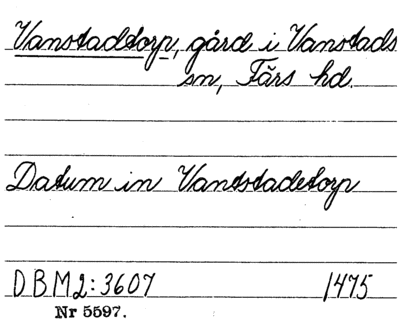 Vanstadtorp, gård i Vanstads
sn, Färs hd.
Datum in Vanstadetorp
DBM2:3607 1475
Nr 5597.